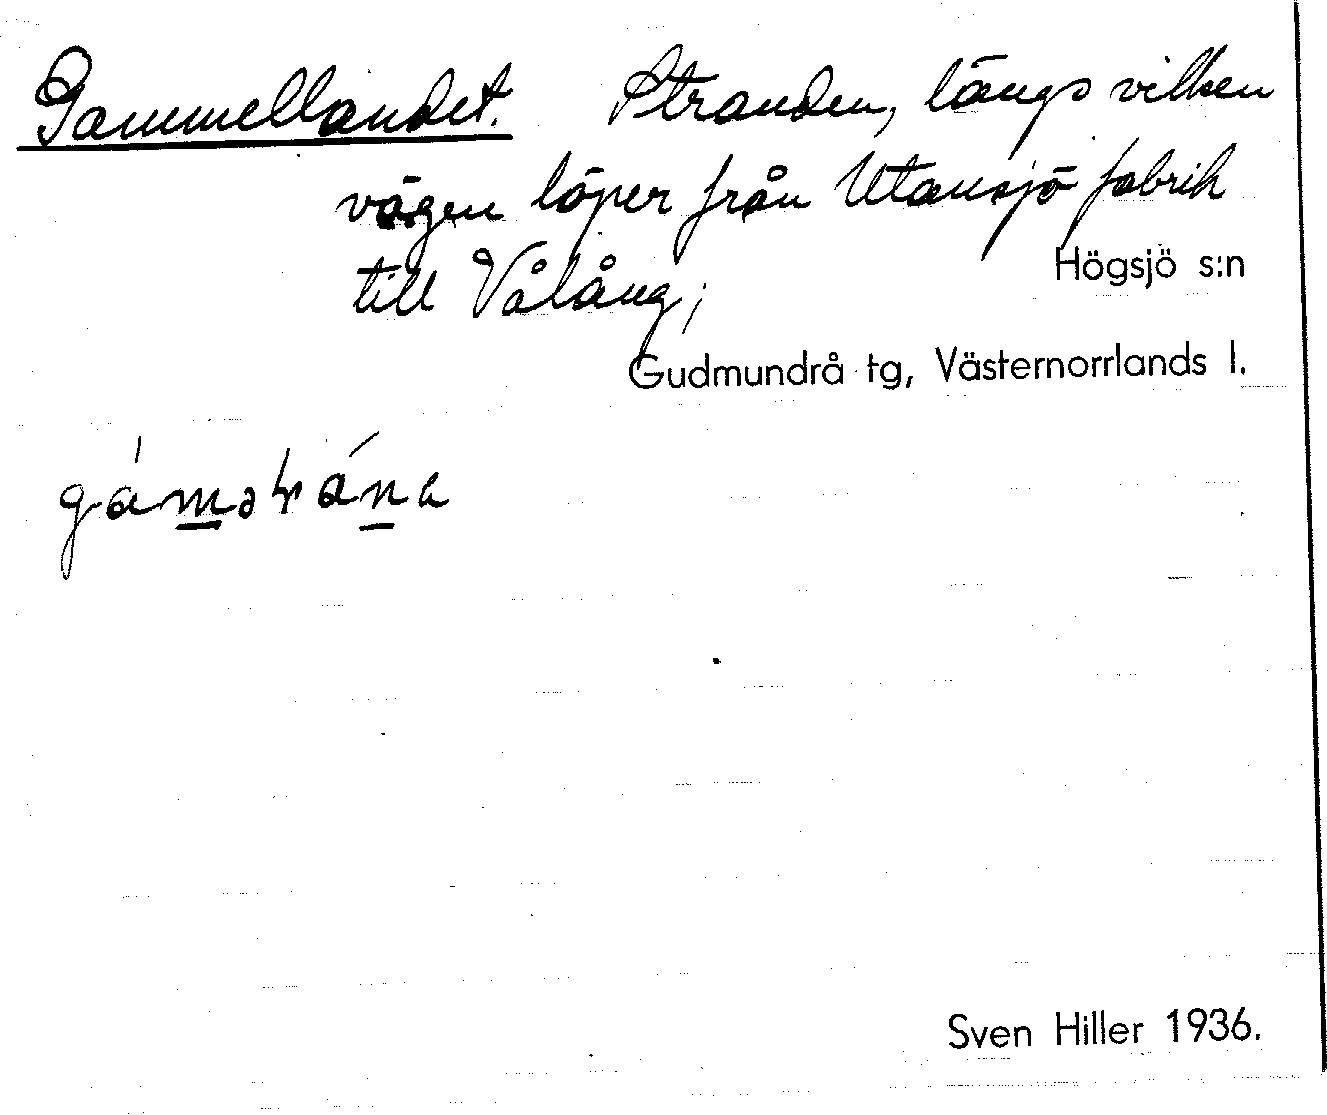 Gammellandet. Stranden, längs vilken
vägen löper från Utansjö fabrik
till Vålång;
Högsjö s:n
Gudmundrå tg, Västernorrlands l.
Sven Hiller 1936.